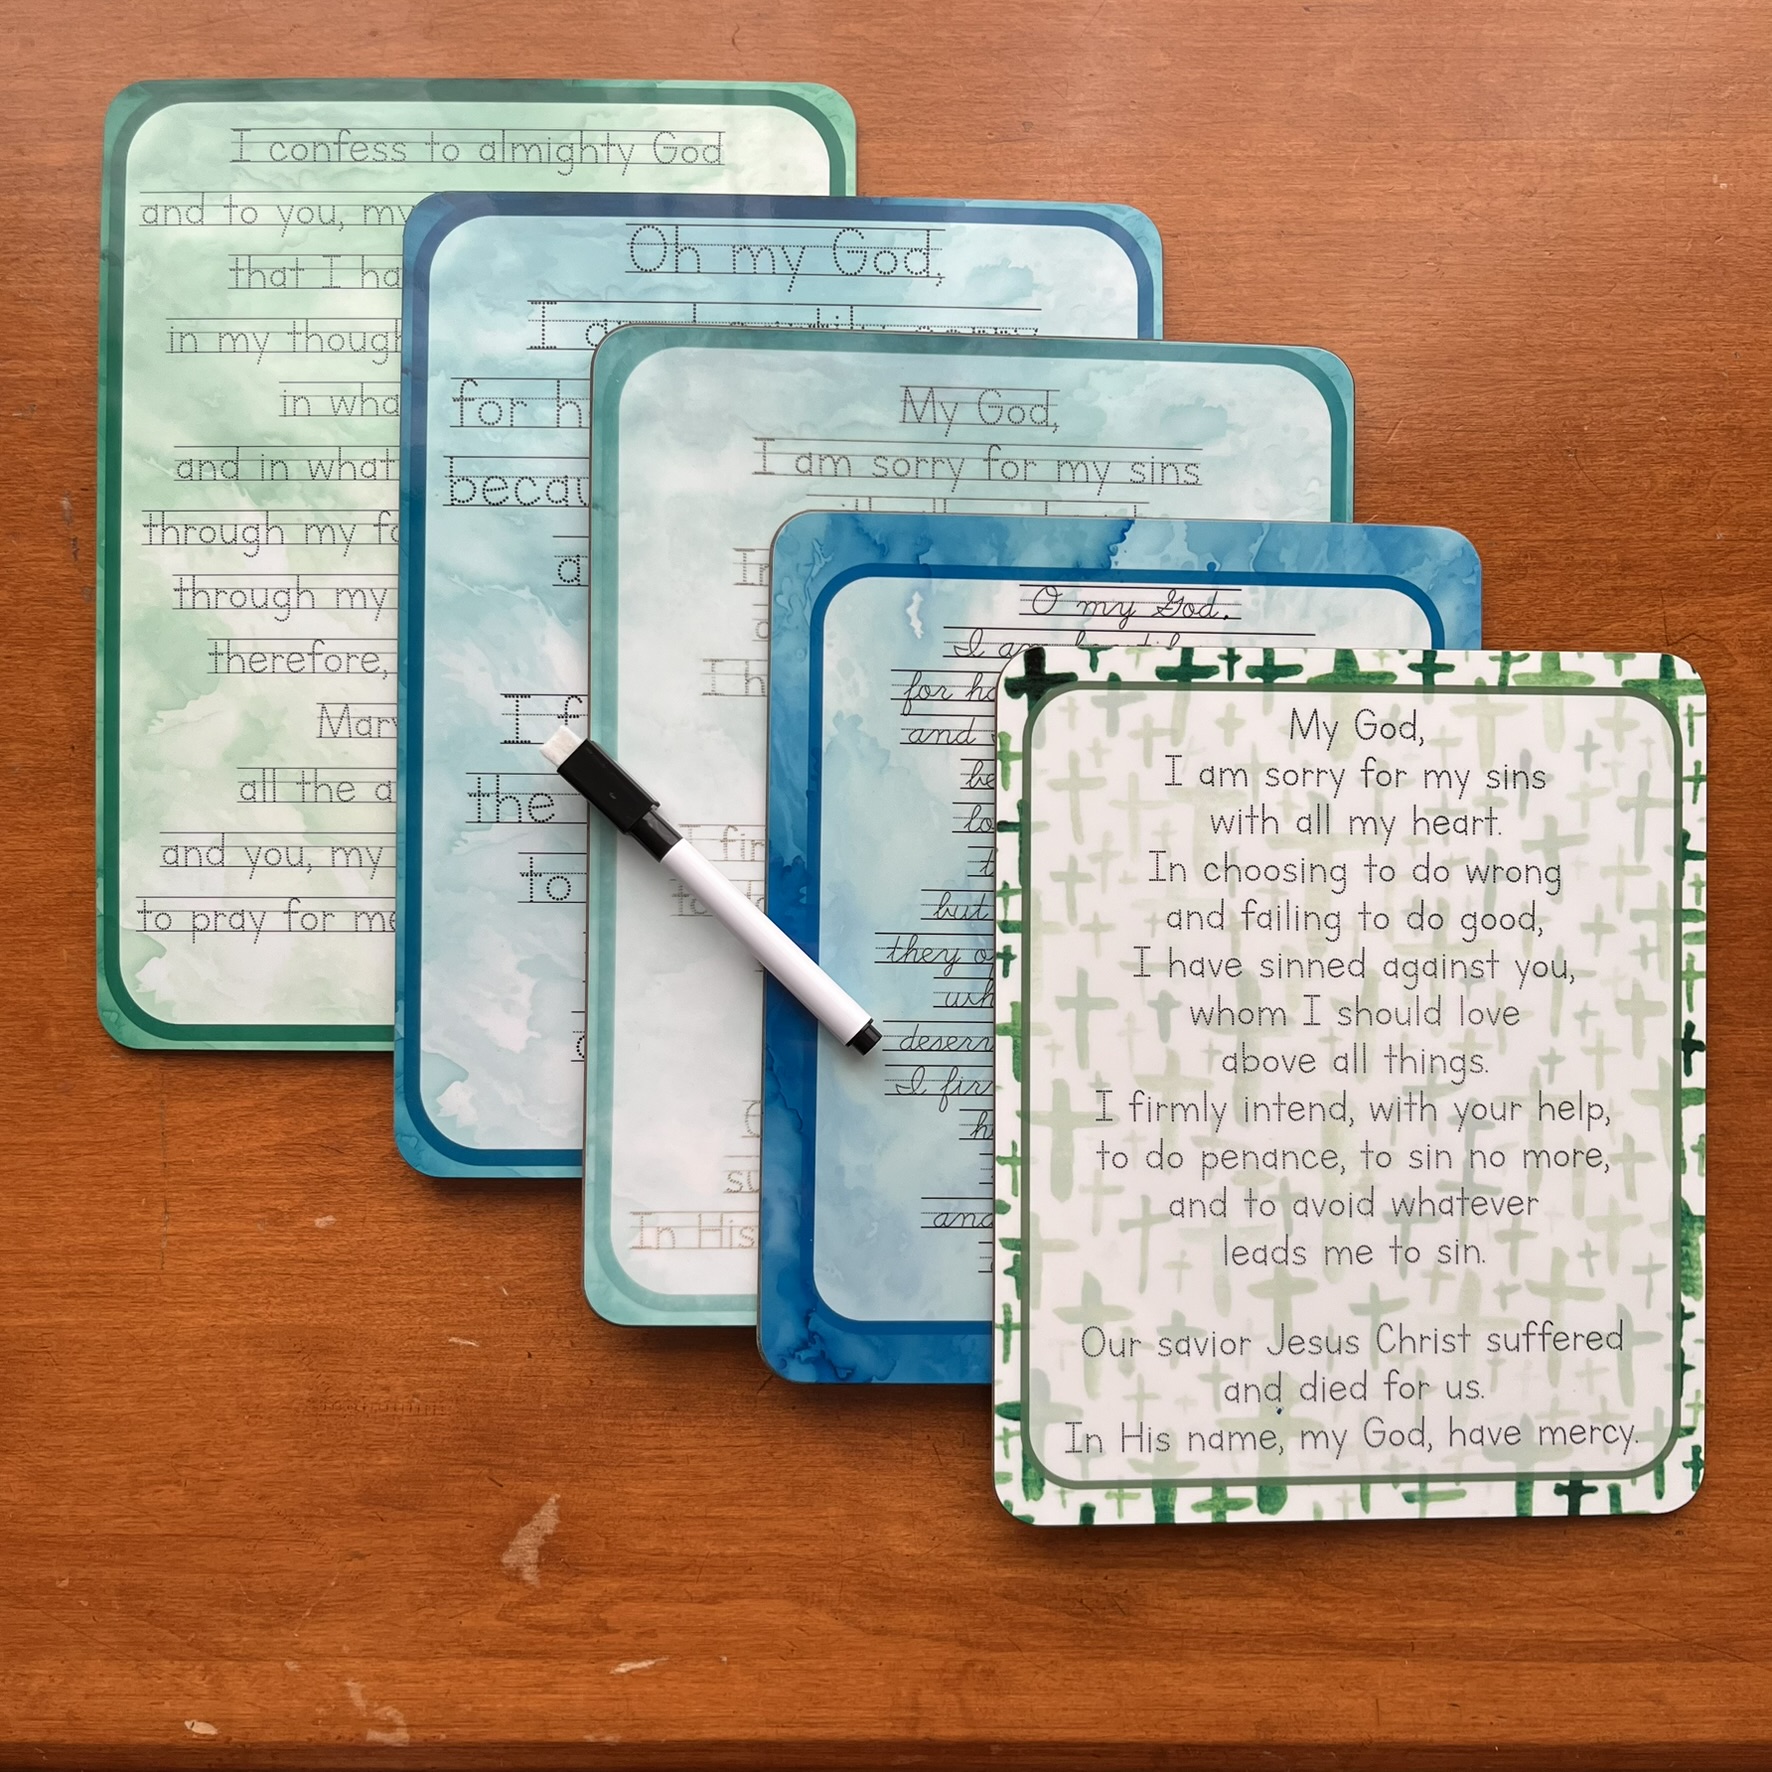 I confess to almighty God
and to you, my
that I ha
in my though
in wha
and in what
through my fa
through my
therefore,
Mary
all the a
and you, my
to pray for me
Oh my God,
I am
for h
becau
a
I f
the
to
My God,
I am sorry for my sins
with all my heart
In
a
I h
I fir
to do
su
In His
O my God,
I am heartily
for ha
and
be
lo
t
but
they o
who
deserv
I firm
he
and
My God,
I am sorry for my sins
with all my heart.
In choosing to do wrong
and failing to do good,
I have sinned against you,
whom I should love
above all things.
I firmly intend, with your help,
to do penance, to sin no more,
and to avoid whatever
leads me to sin.
Our savior Jesus Christ suffered
and died for us.
In His name, my God, have mercy.